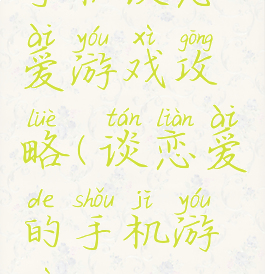 ài yóu xì gōng
爱游戏攻
lüè tán liàn ài
略(谈恋爱
de shǒu jī yóu
的手机游